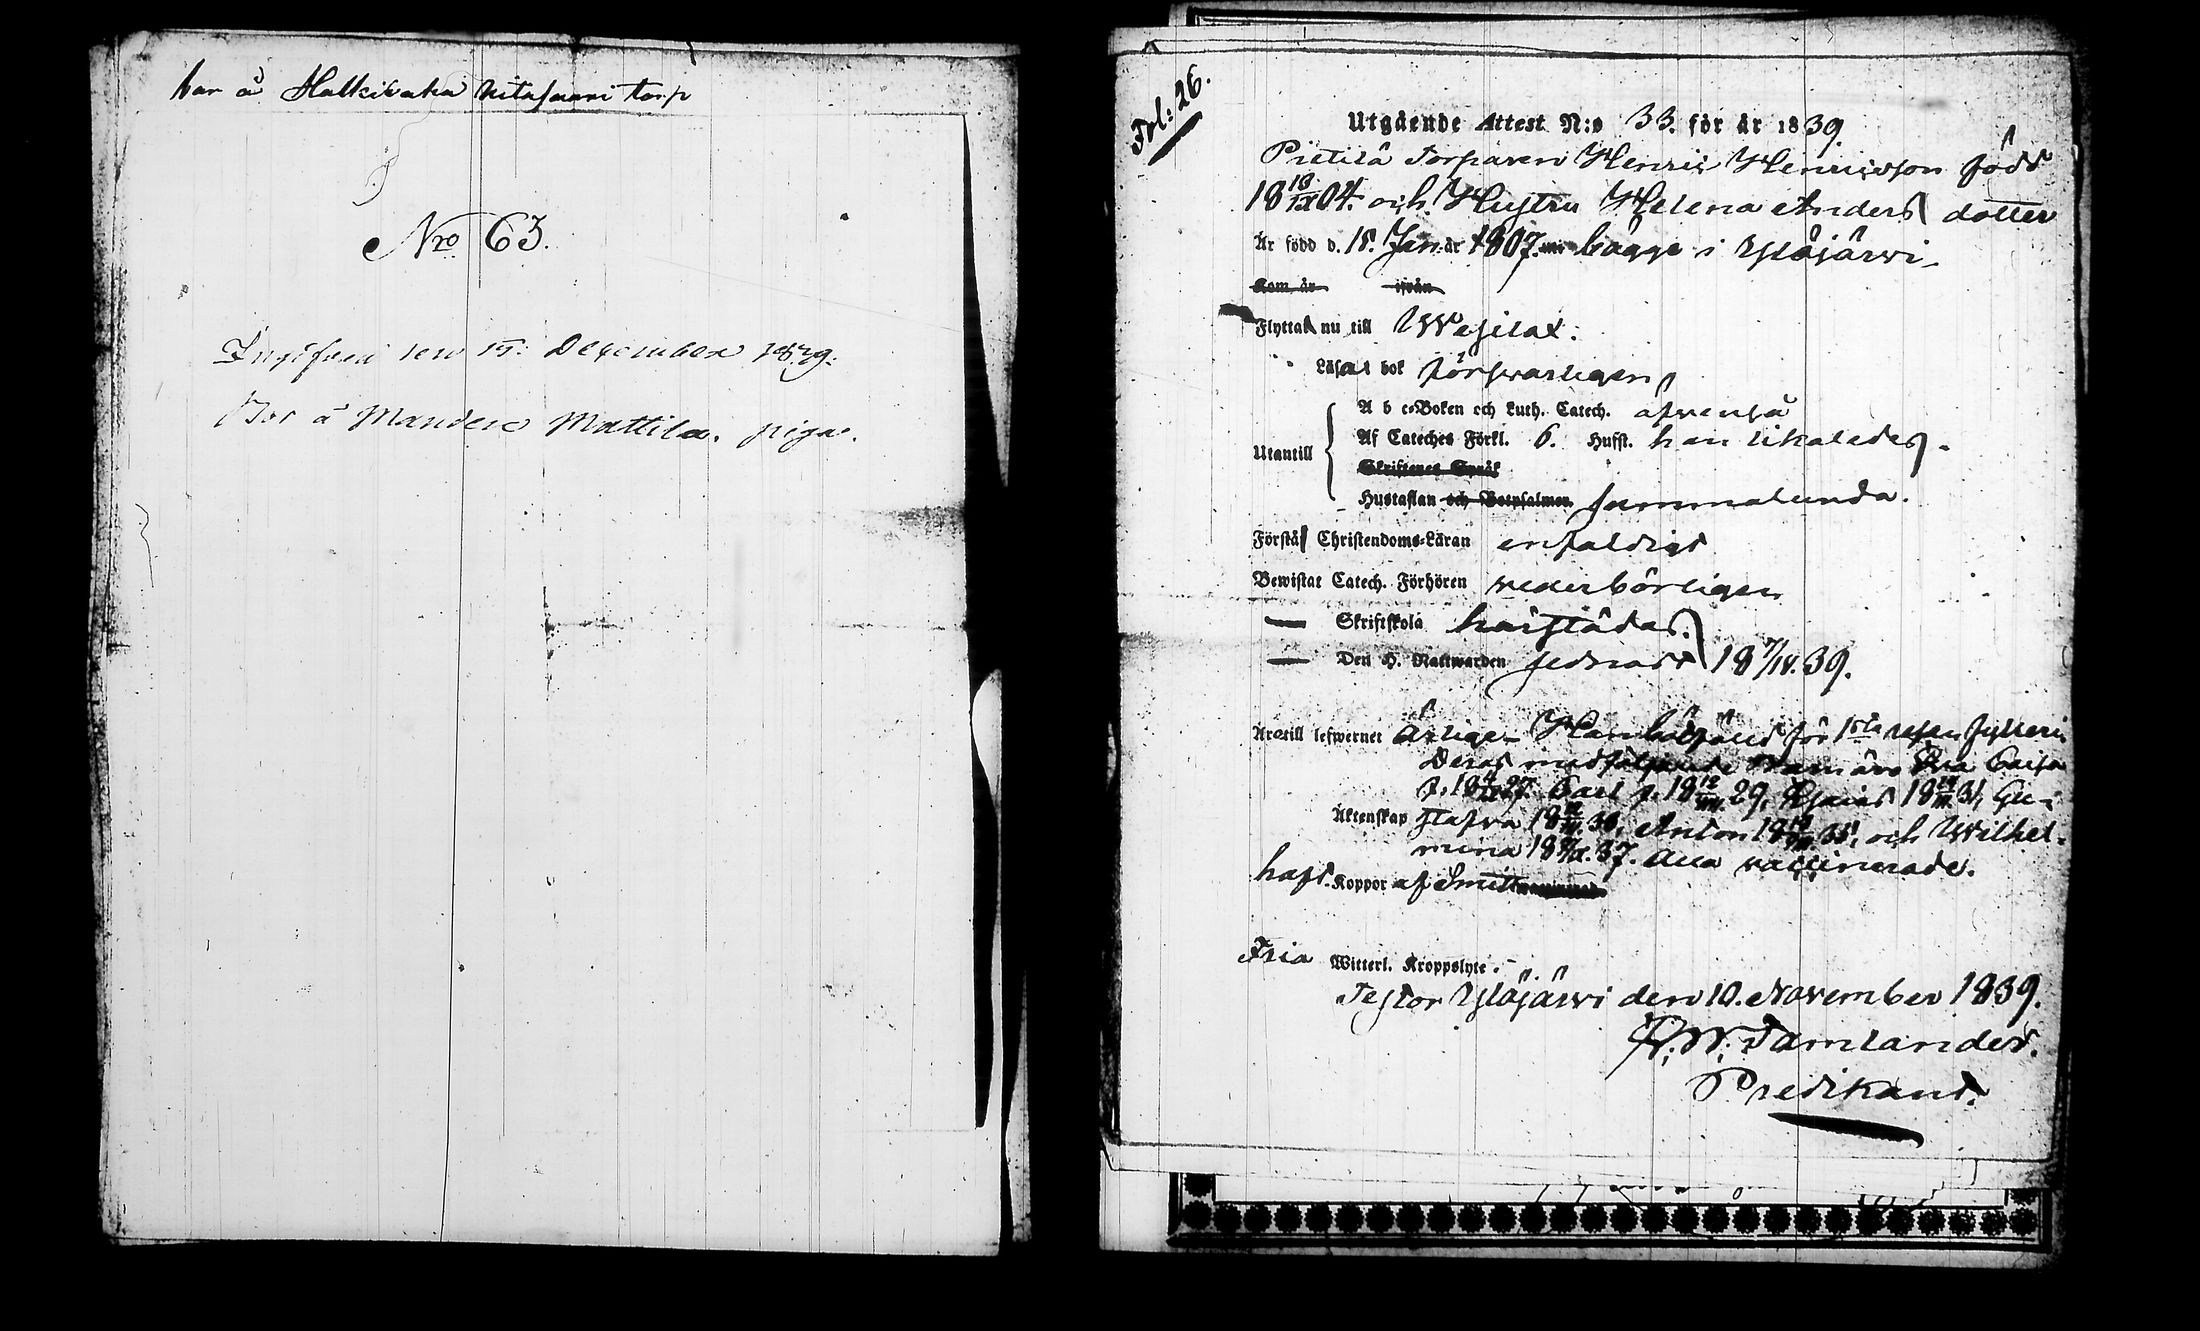 bor å Halkivaha Kitasaari torp
Nro 63.
Ingifven den 15. December 1839.
Bor å Mandere Mattila. piga.
Fol: 26.
Utgående Attest N:o 33. för år 1839.
Pietilä Torparen Henric Henricsson född
18 18/IX 04. och Hustru Helena Anders dotter
Är född d. 18. Jan. år 1807. bägge i Ylöjärwi.
Kom år ifrån
Flyttar nu till Wesilax.
Läsa i bok försvarligen
A b c-Boken och Luth. Catech. äfvenså
Af Cateches Förkl. 6. Hufst. han likaledes.
Utantill
Skriftenes Språk
Hustaflan och Botpsalmer sammalunda.
Förstå Christendoms-Läran enfaldigt
Bewistat Catech. Förhören wederbörligen
Skriftskola härstädes.
Den H. Nattwarden sednast 18 7/IV. 39.
Äro till lefwernet ärlige. Han bötfäld för 1sta resan fylleri
Deras medföljande Barn äro Eva Caisa
f. 18 27. Carl f. 18 12 29, 18 31, Gu-
Äktenskap stafva 18 33, Anton 18 35, och Wilhel-
mina 18 37. alla vaccinerade.
haft Koppor af Smitt
Fria Witterl. Kroppslyte.
Testor Ylöjärwi den 10. November 1839.
Tamlander.
Predikant.